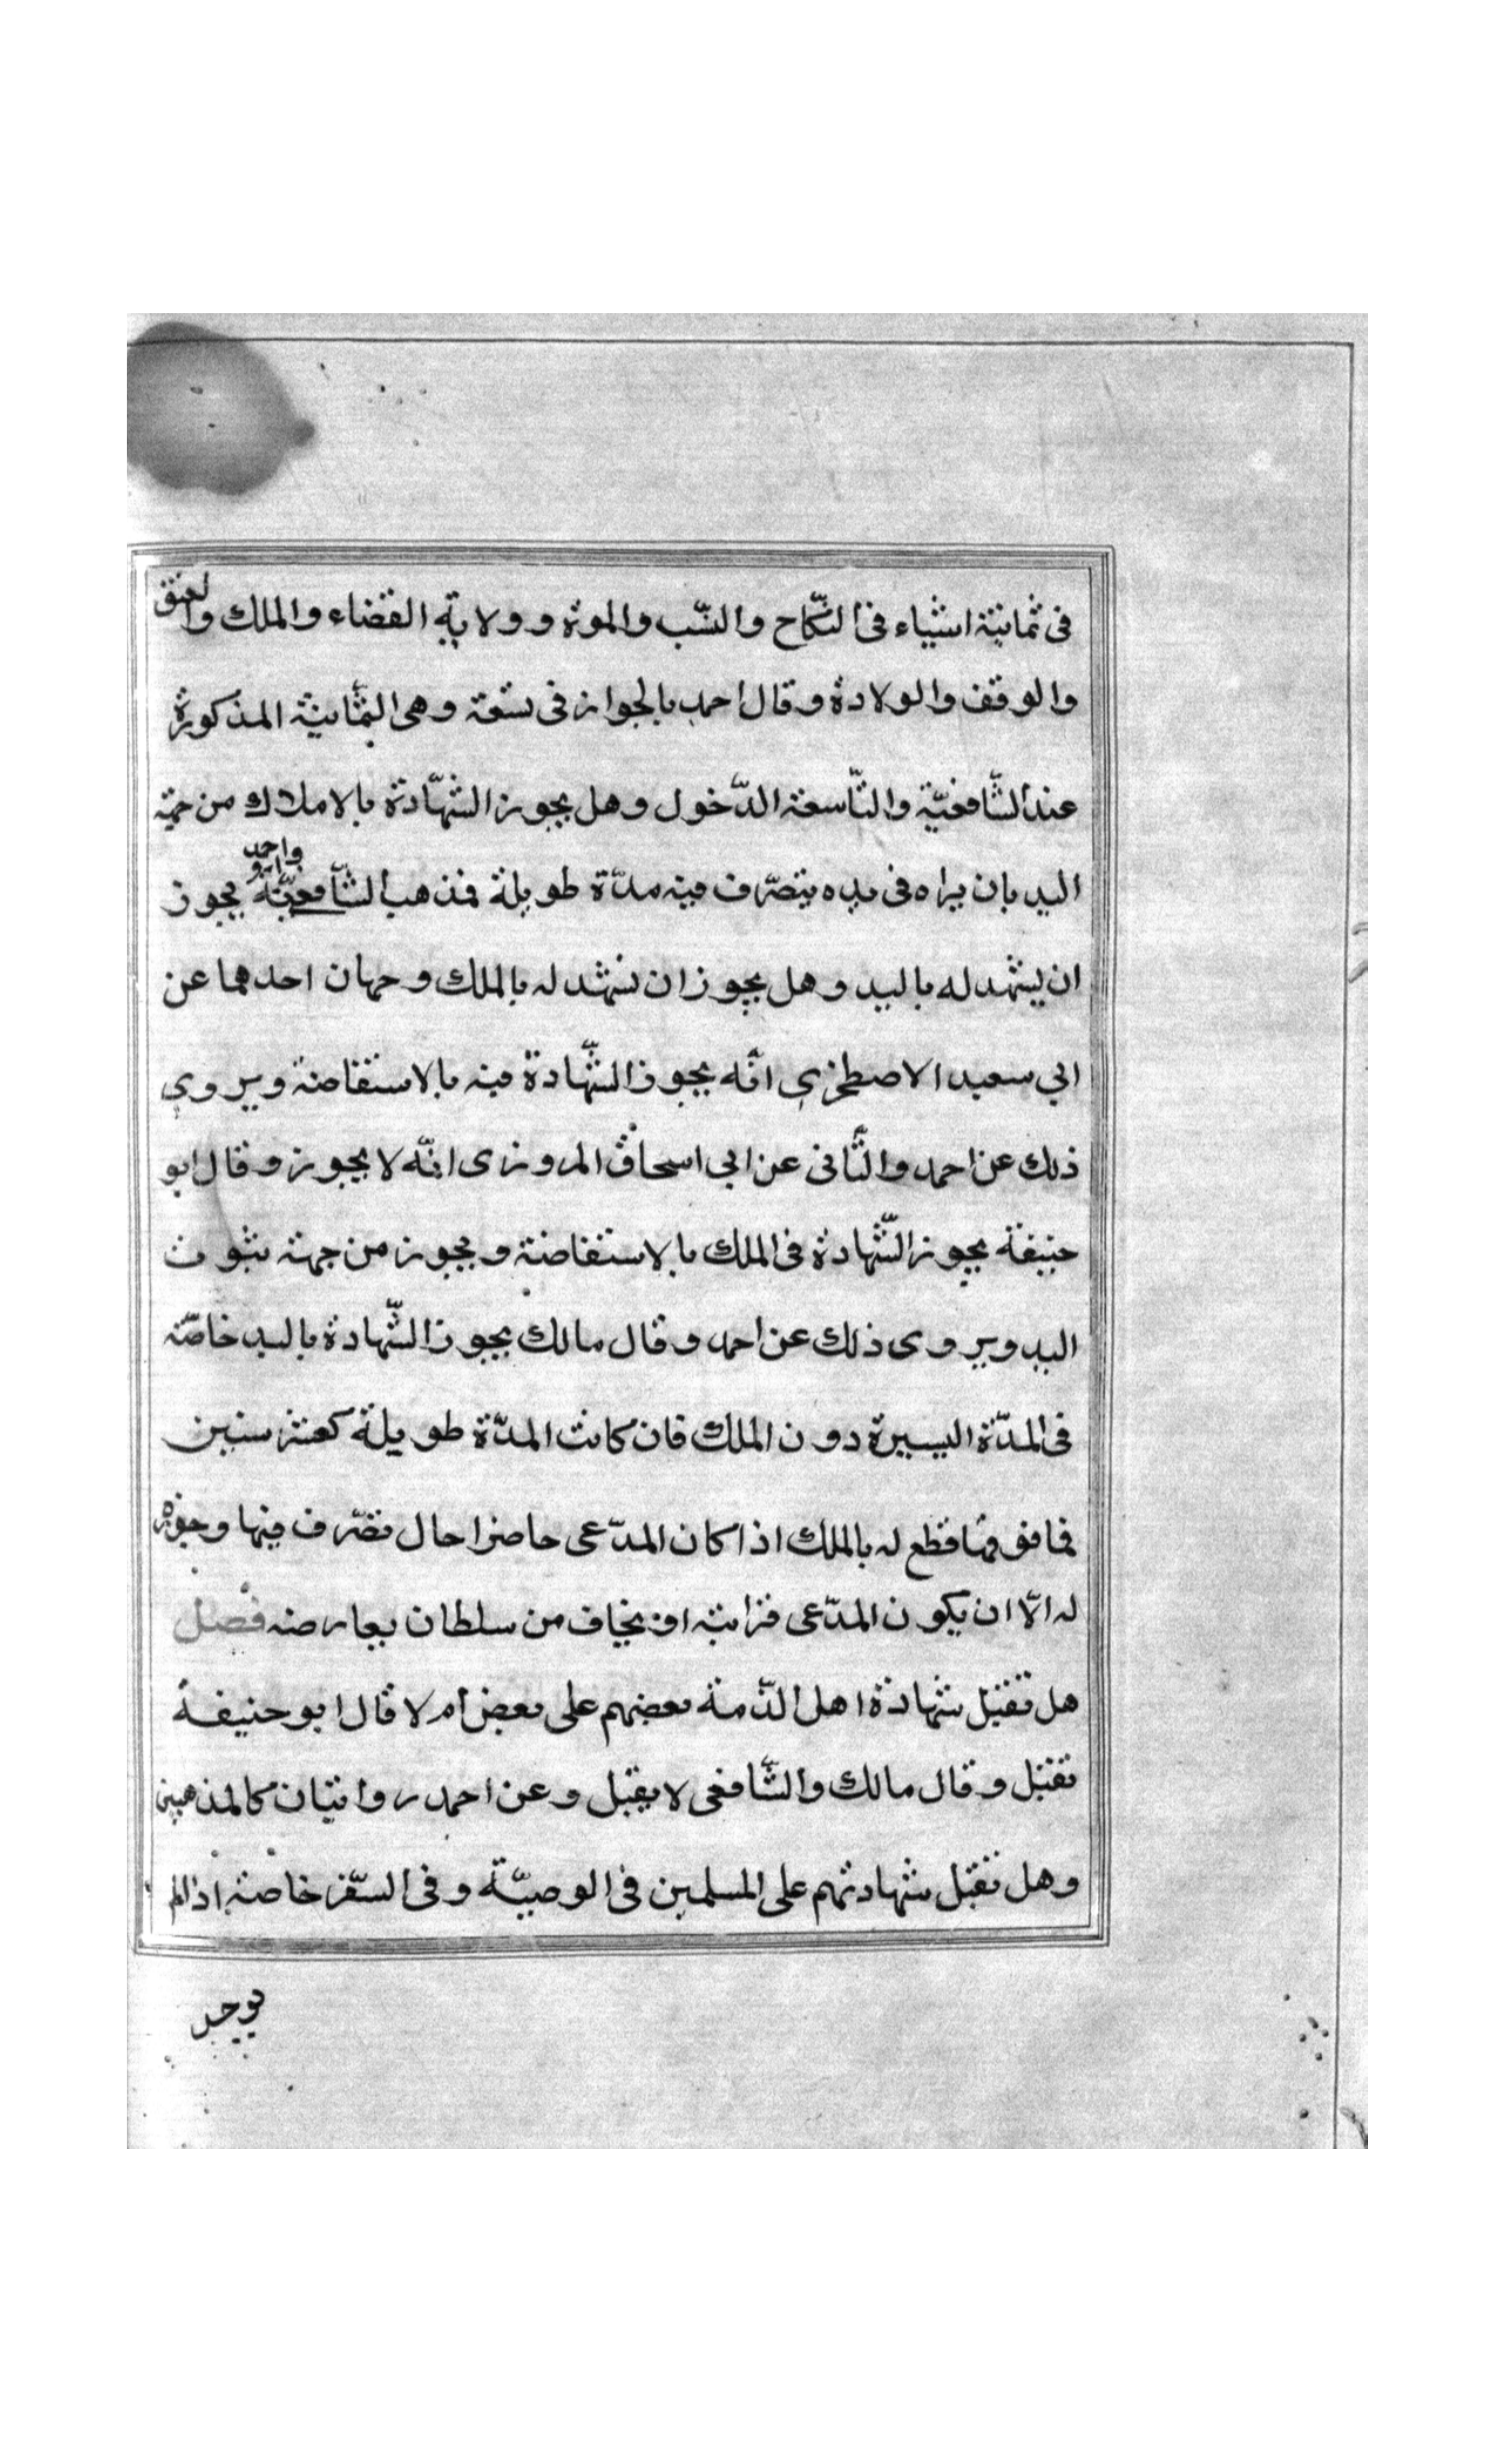 فى ثمانية اشياء فى النّكاح والنّسب والموة وولاية القضاء والملك والعتق
والوقف والولادة وقال احمد بالجواز فى تسعة وهى الثّمانية المذكورة
عند الشّافعيّة والتّاسعة الدّخول وهل يجوز الشّهادة بالاملاك من جهة
اليد بان يراه فى يده يتصرّف فيه مدّة طويلة فمذهب الشّافعيّة يجوز
واحد
ان يشهد له باليد وهل يجوز ان يشهد له بالملك وجهان احدهما عن
ابي سعيد الاصطخرى انّه يجوز الشّهادة فيه بالاستفاضة ويروى
ذلك عن احمد والثّانى عن ابي اسحاق المروزى انّه لا يجوز وقال ابو
حنيفة يجوز الشّهادة فى الملك بالاستفاضة ويجوز من جهة ثبوت
اليد ويروى ذلك عن احمد وقال مالك يجوز الشّهادة باليد خاصّة
فى المدّة اليسيرة دون الملك فان كانت المدّة طويلة كعشر سنين
فما فوقها قطع له بالملك اذا كان المدّعى حاضرا حال تصرّف فيها وحوزه
له الّا ان يكون المدّعى قرابته او يخاف من سلطان يعارضه فصل
هل تقبل شهادة اهل الذّمة بعضهم على بعض ام لا قال ابو حنيفة
تقبل وقال مالك والشّافعى لا يقبل وعن احمد روايتان كالمذهبين
وهل تقبل شهادتهم على المسلمين فى الوصيّة وفى السّفر خاصة اذا لم
يوجد